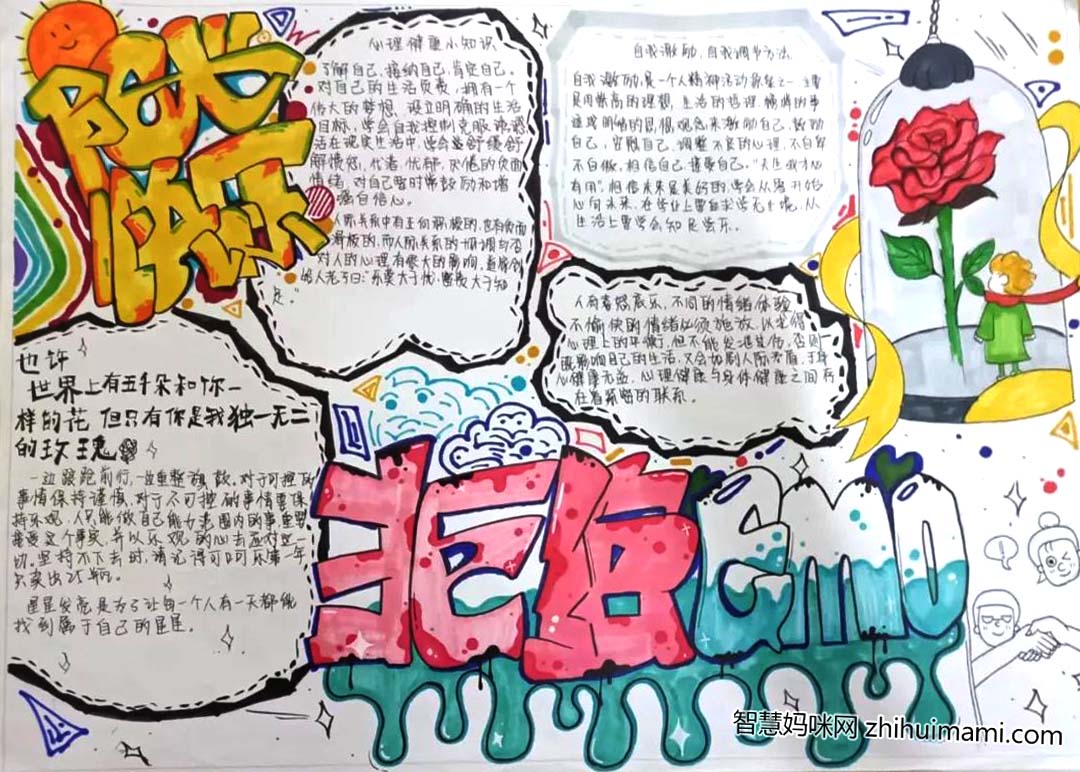 PEK
快乐
心理健康小知识
了解自己,接纳自己,肯定自己。
对自己的生活负责,拥有一个
伟大的梦想、设立明确的生活
目标,学会自我控制克服
活在现实生活中,学会舒缓
解愤怒,忧郁,灰倦的负面
情绪,对自己要时常鼓励和增
强自信心。
对人的心理有很大的影响,
自我激励,自我调节方法
自我激励是一个人精神活动
是用崇高的理想、生活的哲理、榜样的事
迹或明晰的思想观念来激励自己,鼓励
自己,宽慰自己,调整不良的心理,不自
不自傲,相信自己,接受自己。"天生我才必
有用"相信未来是美好的,学会从
心向未来,在学业上要
生活上要学会知足常乐。
人有喜怒哀乐,不同的情绪体验
不愉快的情绪必须施放,以求得
心理上的平衡,但不能发泄过份,否则
既影响自己的生活,又会加剧人际矛盾,于身
心健康无益,心理健康与身体健康之间存
在着紧密的联系。
也许
世界上有五千朵和你一
样的花 但只有你是我独一无二
的玫瑰
一边踉跄前行,一边重整旗鼓。对于可控的
事情保持谨慎,对于不可控的事情要保
持乐观,你只能做自己能力范围内的事,要
接受这个事实,并以乐观的心去面对这一
切。坚持不下去时,请记得可口可乐第一年
只卖出25瓶。
星星发亮是为了让每一个人有一天都能
找到属于自己的星星。
拒绝
emo
智慧妈咪网 zhihuimami.com